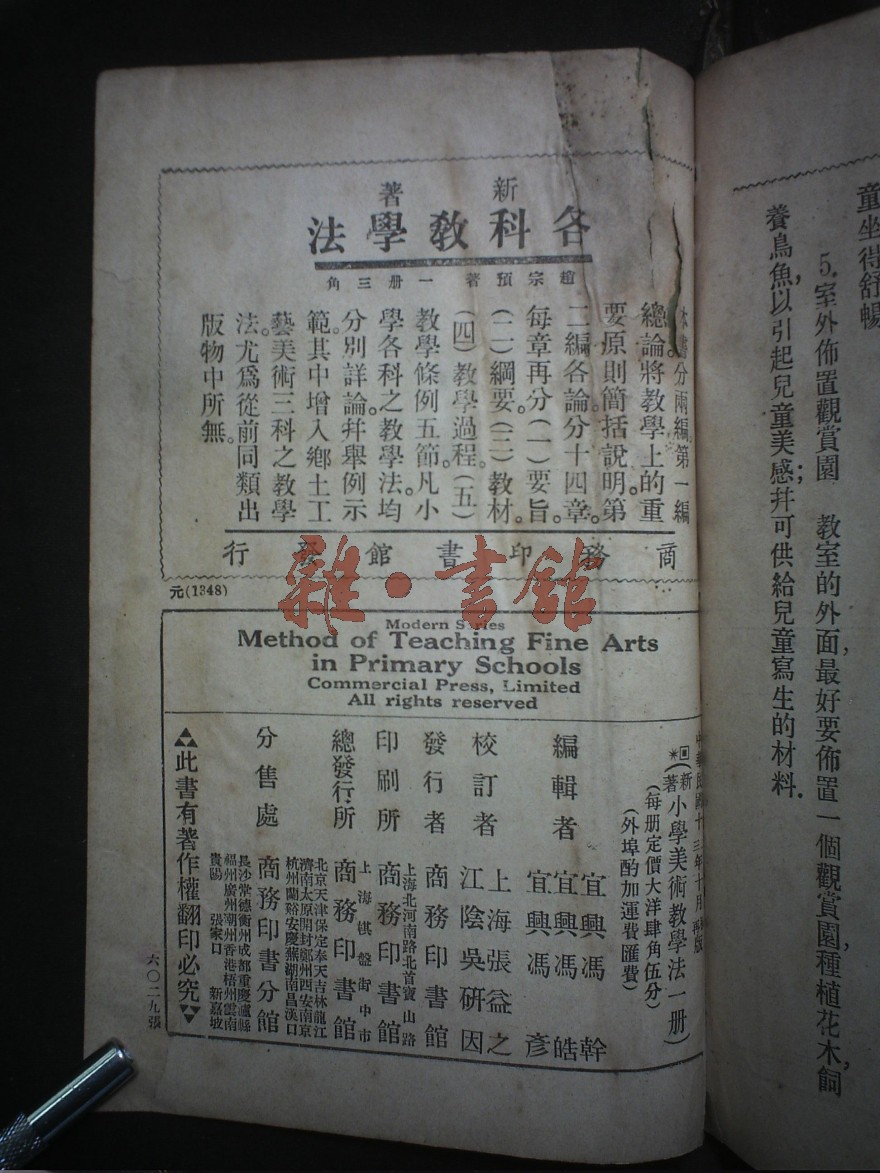 童坐得舒暢
5. 室外佈置觀賞園 教室的外面,最好要佈置一個觀賞園,種植花木,飼
養鳥魚,以引起兒童美感;幷可供給兒童寫生的材料.
新著
各科教學法
趙宗預著 一册三角
書分兩編。第一編
總論將教學上的重
要原則簡括說明。第
二編各論分十四章。
每章再分(一)要旨。
(二)綱要。(三)教材。
(四)教學過程。(五)
教學條例五節。凡小
學各科之教學法。均
分別詳論。幷舉例示
範。其中增入鄉土工
藝美術三科之教學
法。尤爲從前同類出
版物中所無。
商務印書館發行
元(1348)
雜·書館
Modern Series
Method of Teaching Fine Arts
in Primary Schools
Commercial Press, Limited
All rights reserved
中華民國十三年十月再版
(新著)小學美術教學法一册)
(每册定價大洋肆角伍分)
(外埠酌加運費匯費)
編輯者 宜興馮幹
宜興馮皓
宜興馮彥
校訂者 上海張益之
江陰吳研因
發行者 商務印書館
印刷所 上海北河南路北首寶山路
商務印書館
總發行所 上海棋盤街中市
商務印書館
分售處 商務印書分館
北京天津保定奉天吉林龍江
濟南太原開封鄭州西安南京
杭州蘭谿安慶蕪湖南昌漢口
長沙常德衡州成都重慶瀘縣
福州廣州潮州香港梧州雲南
貴陽 張家口 新嘉坡
此書有著作權翻印必究
六〇二九張